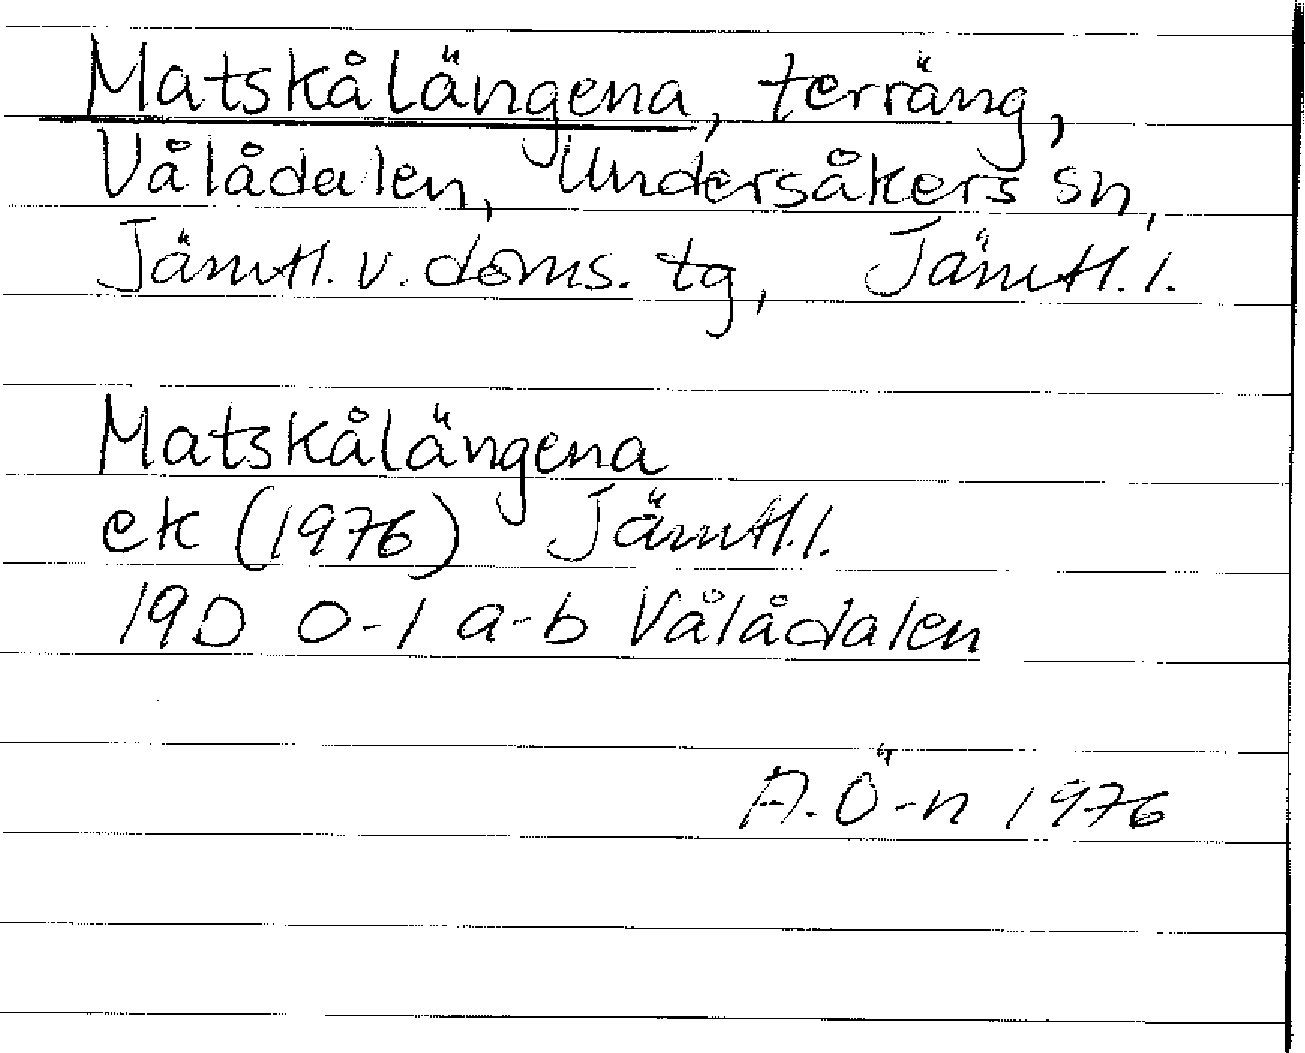 Matskålängena, terräng,
Vålådalen, Undersåkers sn,
Jämtl. v. doms. tg, Jämtl. l.
Matskålängena
ek (1976) Jämtl. l.
19D 0-1 a-b Vålådalen
A. Ö-n 1976